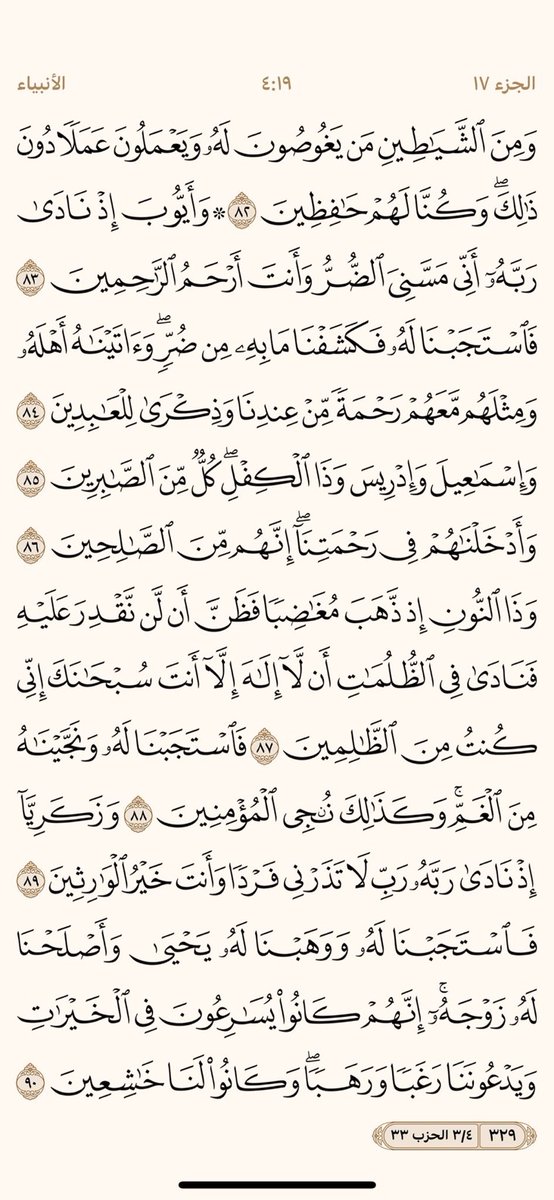 الجزء ١٧ ٤:١٩ الأنبياء
وَمِنَ ٱلشَّيَٰطِينِ مَن يَغُوصُونَ لَهُۥ وَيَعۡمَلُونَ عَمَلٗا دُونَ
ذَٰلِكَۖ وَكُنَّا لَهُمۡ حَٰفِظِينَ ٨٢ ۞ وَأَيُّوبَ إِذۡ نَادَىٰ
رَبَّهُۥٓ أَنِّي مَسَّنِيَ ٱلضُّرُّ وَأَنتَ أَرۡحَمُ ٱلرَّٰحِمِينَ ٨٣
فَٱسۡتَجَبۡنَا لَهُۥ فَكَشَفۡنَا مَا بِهِۦ مِن ضُرّٖۖ وَءَاتَيۡنَٰهُ أَهۡلَهُۥ
وَمِثۡلَهُم مَّعَهُمۡ رَحۡمَةٗ مِّنۡ عِندِنَا وَذِكۡرَىٰ لِلۡعَٰبِدِينَ ٨٤
وَإِسۡمَٰعِيلَ وَإِدۡرِيسَ وَذَا ٱلۡكِفۡلِۖ كُلّٞ مِّنَ ٱلصَّٰبِرِينَ ٨٥
وَأَدۡخَلۡنَٰهُمۡ فِي رَحۡمَتِنَآۖ إِنَّهُم مِّنَ ٱلصَّٰلِحِينَ ٨٦
وَذَا ٱلنُّونِ إِذ ذَّهَبَ مُغَٰضِبٗا فَظَنَّ أَن لَّن نَّقۡدِرَ عَلَيۡهِ
فَنَادَىٰ فِي ٱلظُّلُمَٰتِ أَن لَّآ إِلَٰهَ إِلَّآ أَنتَ سُبۡحَٰنَكَ إِنِّي
كُنتُ مِنَ ٱلظَّٰلِمِينَ ٨٧ فَٱسۡتَجَبۡنَا لَهُۥ وَنَجَّيۡنَٰهُ
مِنَ ٱلۡغَمِّۚ وَكَذَٰلِكَ نُـۨجِي ٱلۡمُؤۡمِنِينَ ٨٨ وَزَكَرِيَّآ
إِذۡ نَادَىٰ رَبَّهُۥ رَبِّ لَا تَذَرۡنِي فَرۡدٗا وَأَنتَ خَيۡرُ ٱلۡوَٰرِثِينَ ٨٩
فَٱسۡتَجَبۡنَا لَهُۥ وَوَهَبۡنَا لَهُۥ يَحۡيَىٰ وَأَصۡلَحۡنَا
لَهُۥ زَوۡجَهُۥٓۚ إِنَّهُمۡ كَانُواْ يُسَٰرِعُونَ فِي ٱلۡخَيۡرَٰتِ
وَيَدۡعُونَنَا رَغَبٗا وَرَهَبٗاۖ وَكَانُواْ لَنَا خَٰشِعِينَ ٩٠
٣٢٩ ٣/٤ الحزب ٣٣